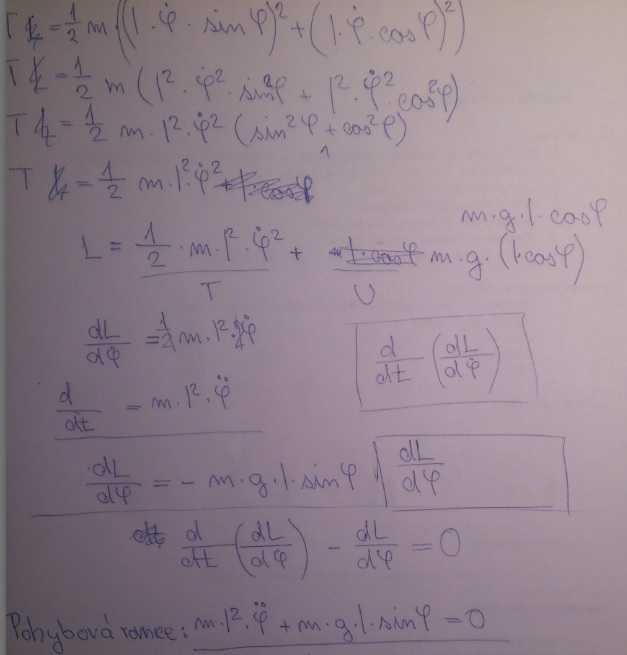 T = 1/2 m·((l·φ̇·sinφ)² + (l·φ̇·cosφ)²)
T = 1/2 m (l²·φ̇²·sin²φ + l²·φ̇²·cos²φ)
T = 1/2 m·l²·φ̇² (sin²φ + cos²φ)
1
T = 1/2 m·l²·φ̇²
m·g·l·cosφ
L = 1/2·m·l²·φ̇² + m·g·(l·cosφ)
T U
dL/dφ̇ = 1/2 m·l²·2φ̇
d/dt (dL/dφ̇)
d/dt = m·l²·φ̈
dL/dφ = - m·g·l·sinφ dL/dφ
d/dt (dL/dφ̇) - dL/dφ = 0
Pohybová rovnice: m·l²·φ̈ + m·g·l·sinφ = 0